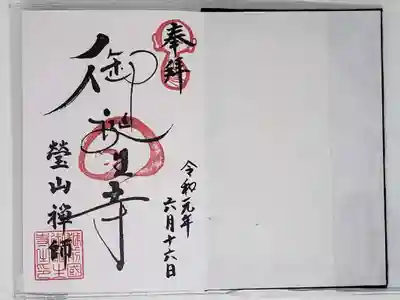 奉拝
令和元年
六月十六日
御誕生寺
瑩山禅師